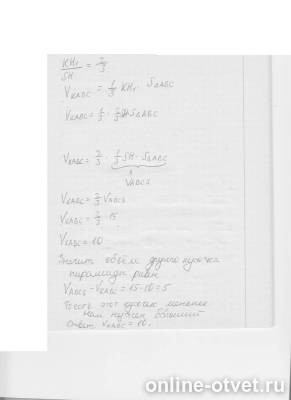 KH₁/SH = 2/3
V_KABC = 1/3 KH₁ · S_ΔABC
V_KABC = 1/3 · 2/3 SH · S_ΔABC
V_KABC = 2/3 · 1/3 SH · S_ΔABC
V_ABCS
V_KABC = 2/3 V_ABCS
V_KABC = 2/3 · 15
V_KABC = 10
Значит объём другого кусочка
пирамиды равен
V_ABCS - V_KABC = 15-10 = 5
То есть этот кусочек меньше
нам нужен больший
Ответ: V_KABC = 10.
online-otvet.ru